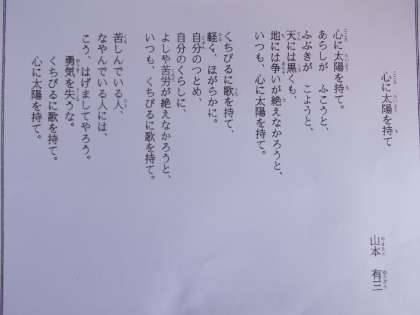 心に太陽を持て
山本 有三
心に太陽を持て。
あらしが ふこうと、
ふぶきが こようと、
天には黒くも、
地には争いが絶えなかろうと、
いつも、心に太陽を持て。
くちびるに歌を持て、
軽く、ほがらかに。
自分のつとめ、
自分のくらしに、
よしや苦労が絶えなかろうと、
いつも、くちびるに歌を持て。
苦しんでいる人、
なやんでいる人には、
こう、はげましてやろう。
勇気を失うな。
くちびるに歌を持て。
心に太陽を持て。